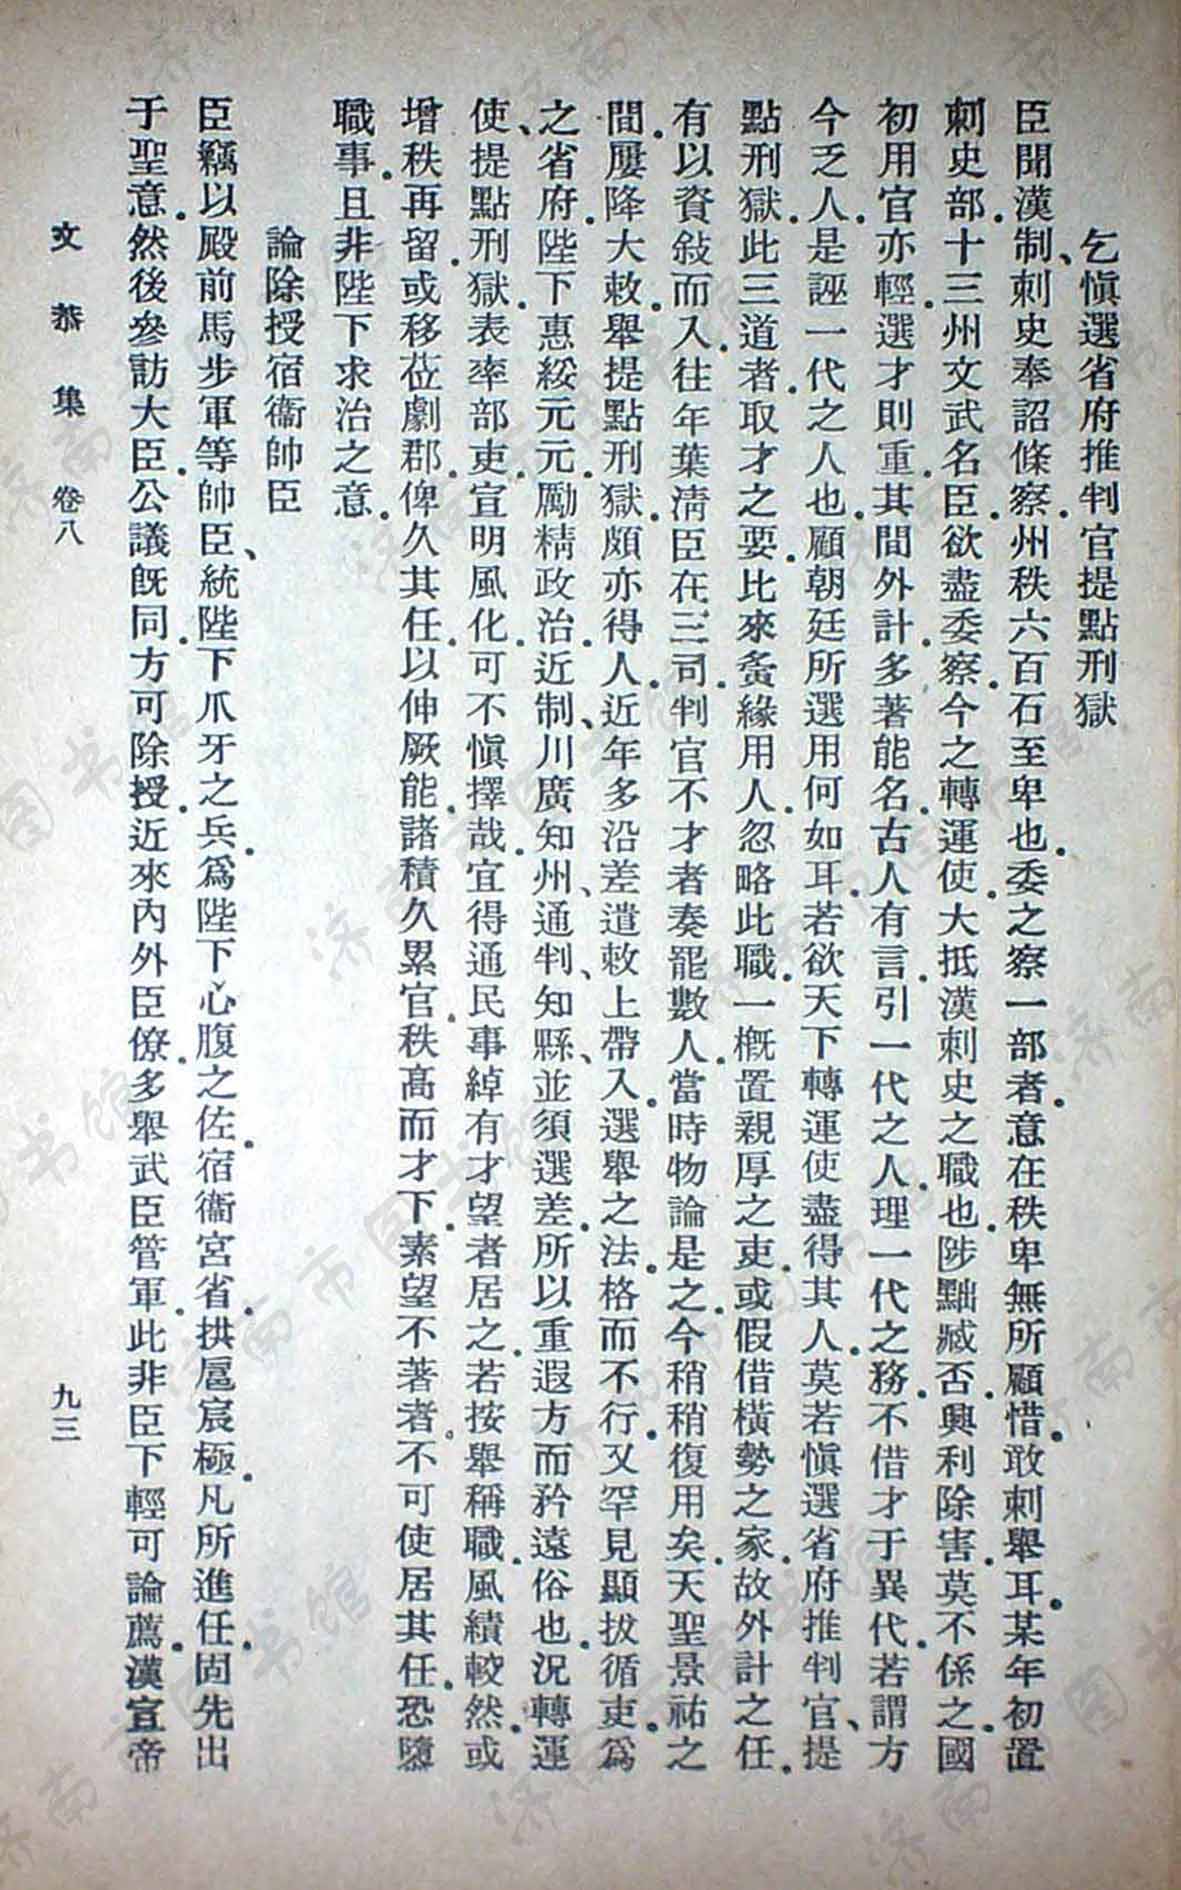 乞愼選省府推判官提點刑獄
臣聞漢制、刺史奉詔條察州秩六百石至卑也。委之察一部者。意在秩卑無所顧惜。敢刺舉耳。某年初置
刺史部。十三州文武名臣。欲盡委察。今之轉運使。大抵漢刺史之職也。陟黜臧否。興利除害。莫不係之。國
初用官亦輕。選才則重。其間外計。多著能名。古人有言。引一代之人。理一代之務。不借才于異代。若謂方
今乏人。是誣一代之人也。顧朝廷所選用何如耳。若欲天下轉運使盡得其人。莫若愼選省府推判官、提
點刑獄。此三道者。取才之要。比來夤緣用人。忽略此職。一槪置親厚之吏。或假借橫勢之家。故外計之任。
有以資敍而入。往年葉淸臣在三司。判官不才者奏罷數人。當時物論是之。今稍稍復用矣。天聖景祐之
間。屢降大敕。舉提點刑獄。頗亦得人。近年多沿差遣敕上帶入。選舉之法。格而不行。又罕見顯拔循吏。爲
之省府。陛下惠綏元元。勵精政治。近制、川廣知州、通判、知縣、並須選差。所以重遐方而矜遠俗也。況轉運
使、提點刑獄。表率部吏。宣明風化。可不愼擇哉。宜得通民事綽有才望者居之。若按舉稱職。風績較然。或
增秩再留。或移莅劇郡。俾久其任。以伸厥能。諸積久累官。秩高而才下。素望不著者。不可使居其任。恐隳
職事。且非陛下求治之意。
論除授宿衞帥臣
臣竊以殿前馬步軍等帥臣、統陛下爪牙之兵。爲陛下心腹之佐。宿衞宮省。拱扈宸極。凡所進任。固先出
于聖意。然後參訪大臣。公議旣同。方可除授。近來內外臣僚。多舉武臣管軍。此非臣下輕可論薦。漢宣帝
文恭集 卷八 九三
济南市图书馆